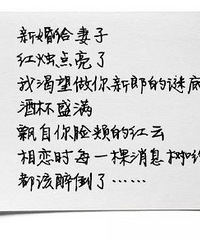 新婚给妻子
红烛点亮了
我渴望做你新郎的谜底
酒杯盛满
亲自你脸颊的红云
相恋时每一棵消息树
都该醉倒了……